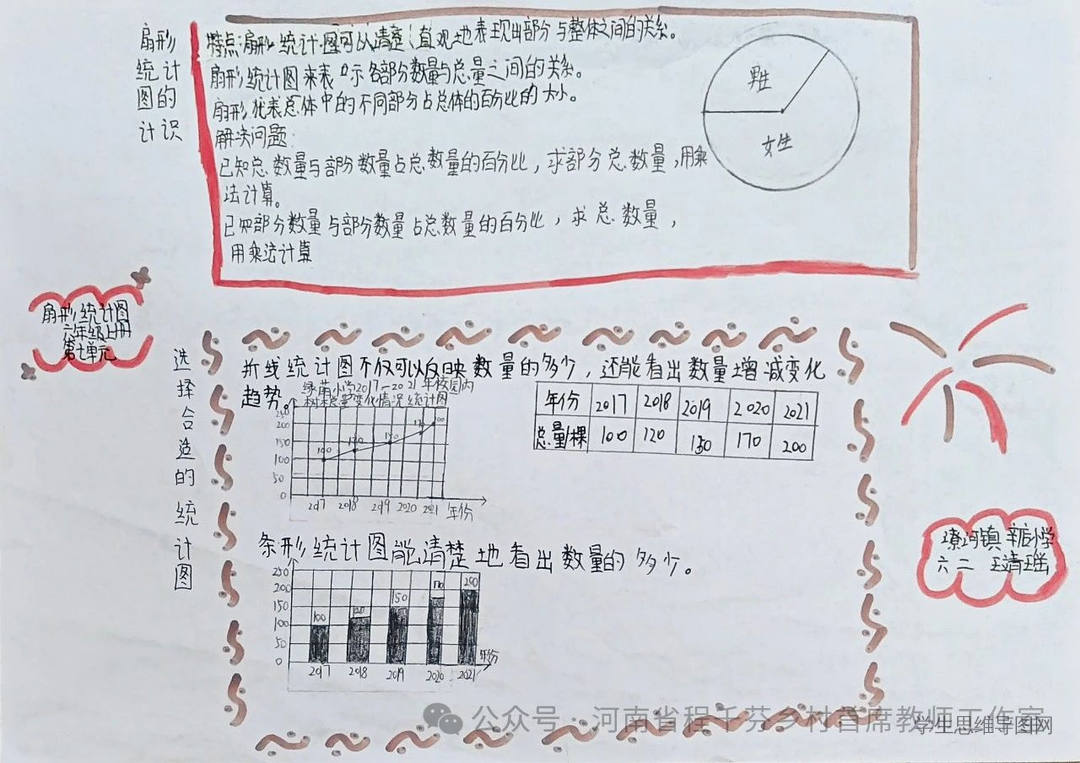 扇形
统计
图的
计识
特点:扇形统计图可以清楚、直观地表现出部分与整体之间的关系。
扇形统计图来表示各部分数量与总量之间的关系。
扇形代表总体中的不同部分占总体的百分比的大小。
解决问题:
已知总数量与部分数量占总数量的百分比,求部分总数量,用乘
法计算。
已知部分数量与部分数量占总数量的百分比,求总数量,
用乘法计算
男生
女生
扇形统计图
六年级上册
第七单元
选择合造的统计图
折线统计图不仅可以反映数量的多少,还能看出数量增减变化
趋势。
2017-2021年校园内
树木总量变化情况统计图
250
200
150
100
50
0
100
120
150
170
200
2017 2018 2019 2020 2021 年份
年份 2017 2018 2019 2020 2021
总量/棵 100 120 150 170 200
条形统计图能清楚地看出数量的多少。
250
200
150
100
50
0
100
120
150
170
200
2017 2018 2019 2020 2021
年份
小学
六二 王靖瑶
公众号·河南省程千芬乡村首席教师工作室
学生思维导图网